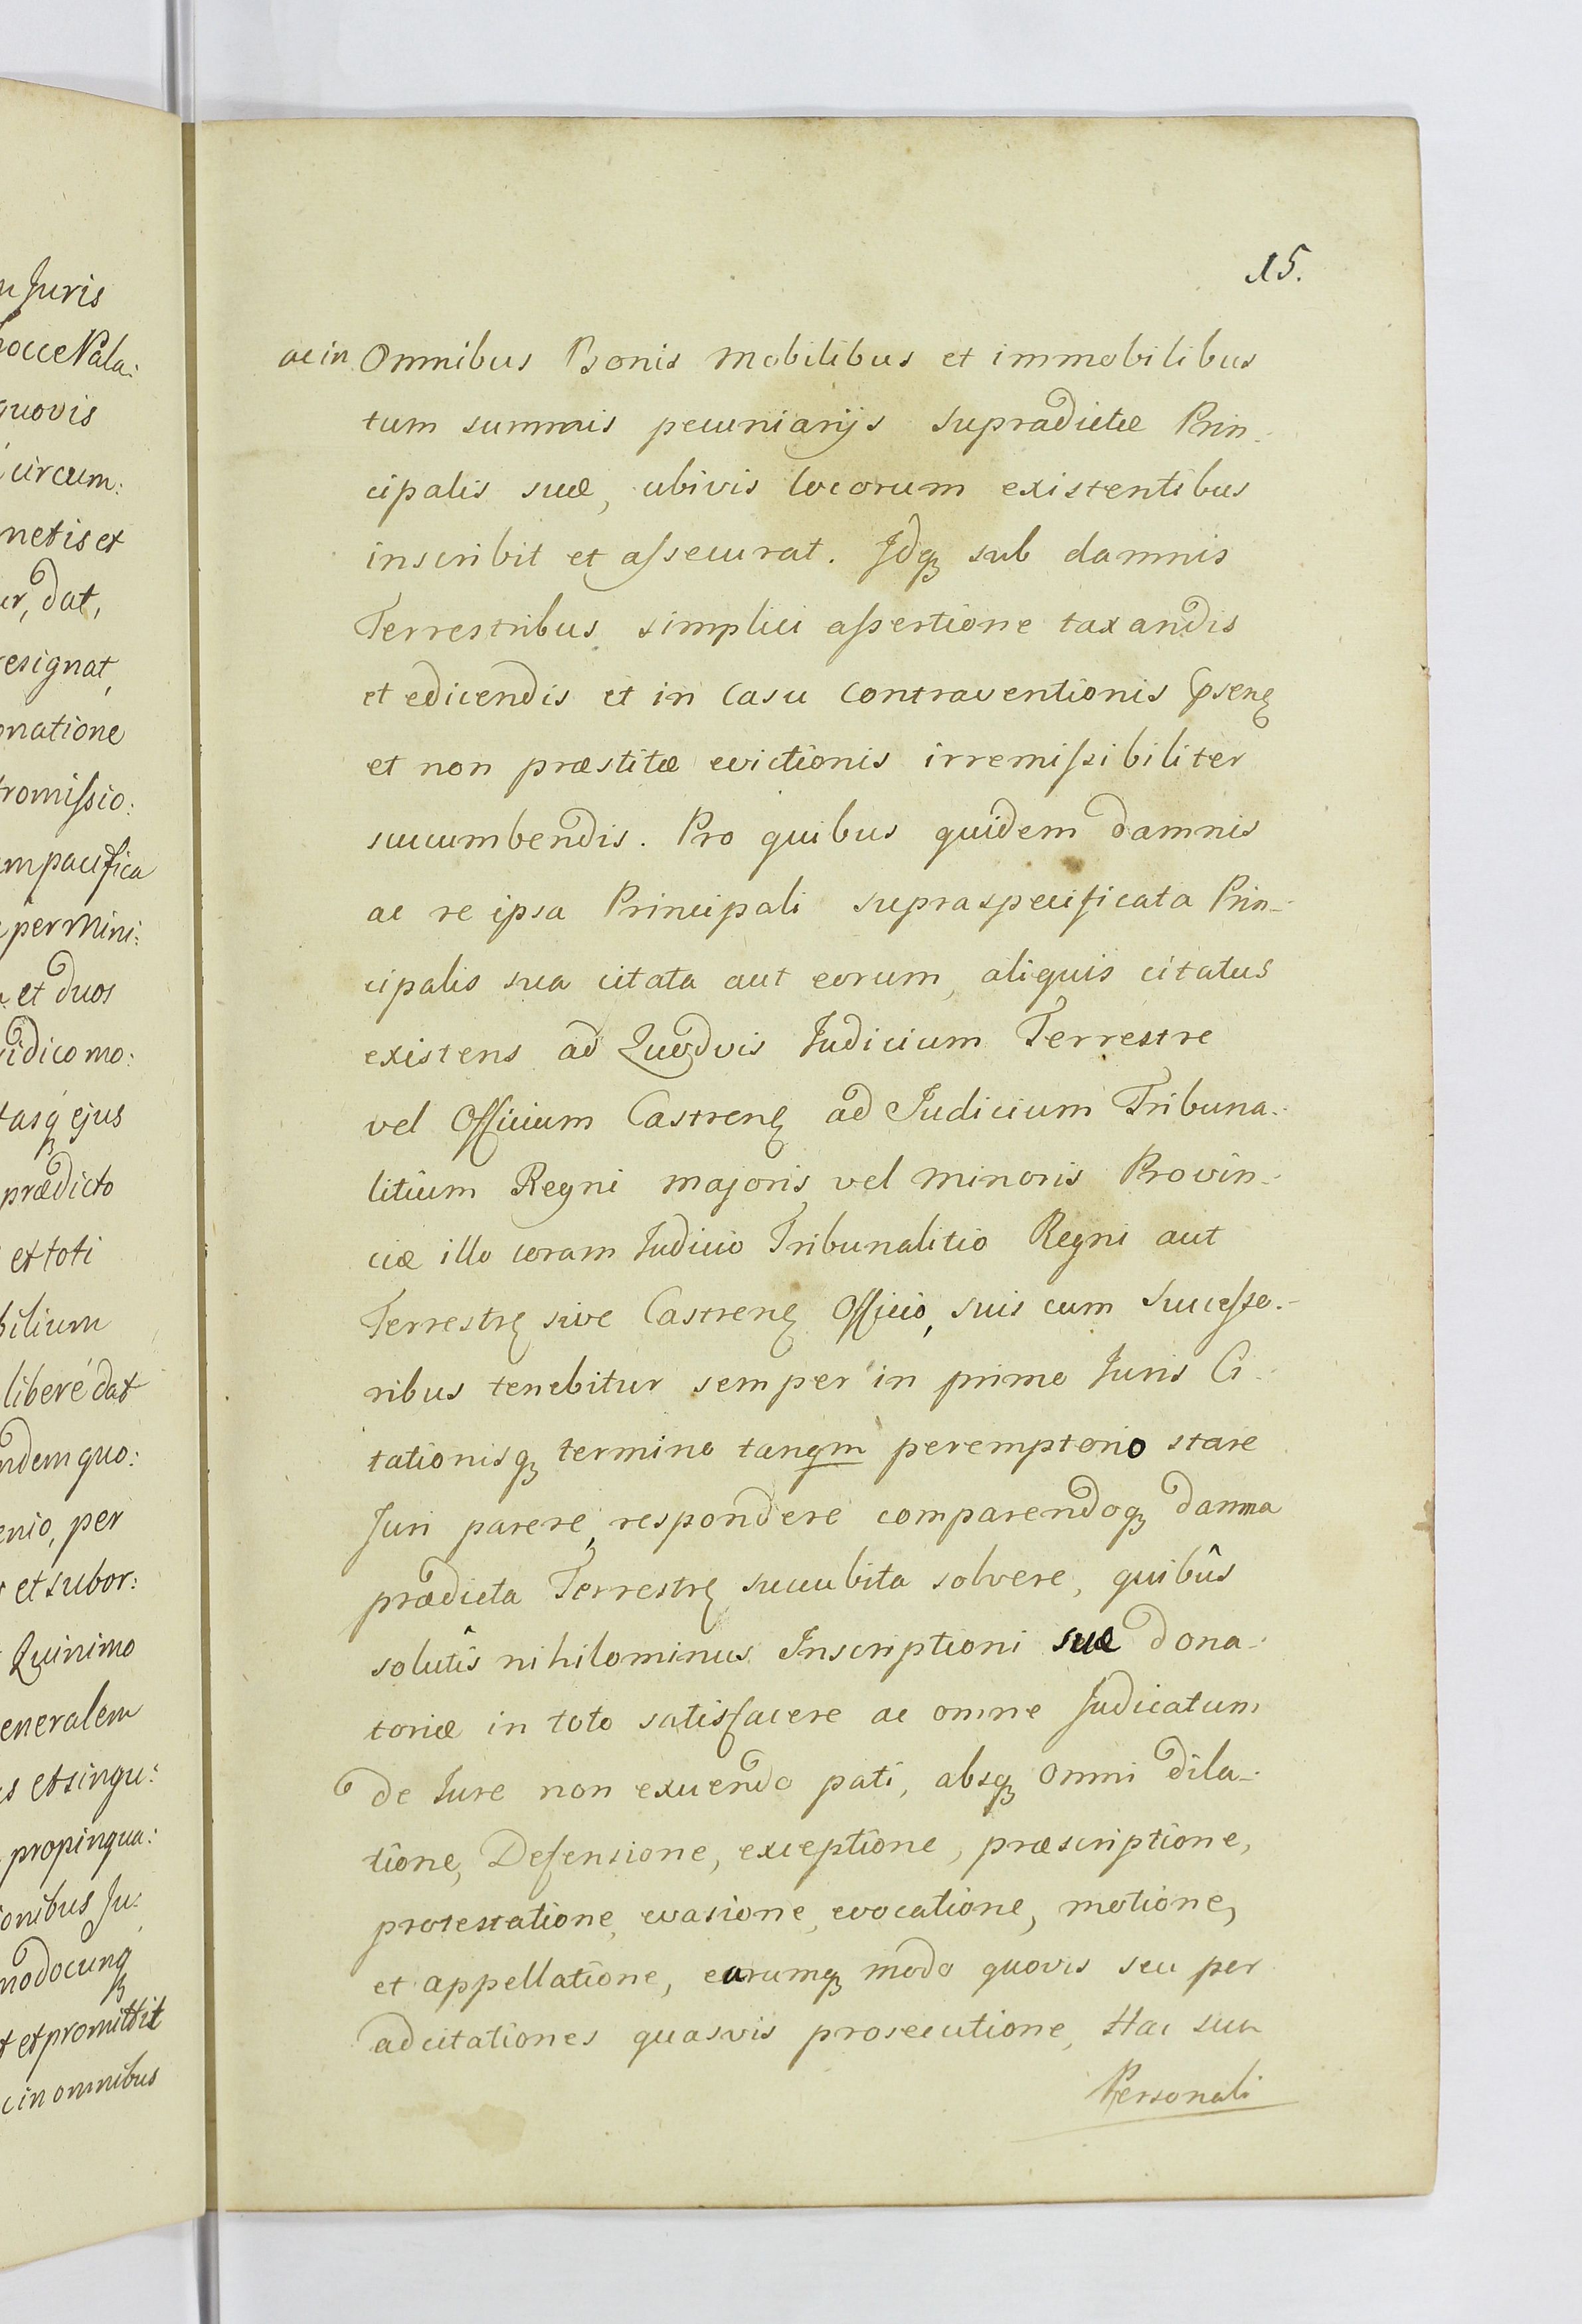 u Juris
hocce Pala:
quovis
circum:
netis et
ur, dat,
resignat,
onatione
tromissio:
em pacifica
per Mini:
et duos
vidico mo:
tasq ejus
prædicto
et toti
bilium
libere dat
ndem quo:
enio, per
et subor:
Quinimo
eneralem
s et singu:
propinqua:
onibus Ju:
modocunq
t et promittit
c in omnibus
15.
ac in Omnibus Bonis Mobilibus et immobilibus
tum summis pecuniarijs supradictæ Prin-
cipalis suæ, ubivis locorum existentibus
inscribit et assecurat. Jdq sub damnis
Terrestribus simplici assertione taxandis
et edicendis et in Casu Contraventionis psenꝫ
et non præstitæ evictionis irremissibiliter
succumbendis. Pro quibus quidem damnis
ac re ipsa Principali supraspecificata Prin-
cipalis sua citata aut eorum, aliquis citatus
existens ad Quodvis Judicium Terrestre
vel Officium Castrenꝫ ad Judicium Tribuna-
litium Regni majoris vel minoris Provin-
ciæ illo coram Judicio Tribunalitio Regni aut
Terrestrꝫ sive Castrenꝫ Officio, suis cum Successo-
ribus tenebitur semper in primo Juris Ci-
tationisq termino tanqm peremptorio stare
Juri parere, respondere comparendoq damna
prædicta Terrestrꝫ succubita solvere, quibûs
solutîs nihilominus Inscriptioni suæ dona-
toriæ in toto satisfacere ac omne Judicatum
de Jure non exuendo pati, absq omni dila-
tione, Defensione, exceptione, præscriptione,
protestatione, evasione, evocatione, motione,
et appellatione, earumq modo quovis seu per
adcitationes quasvis prosecutione, Hac sua
Personali